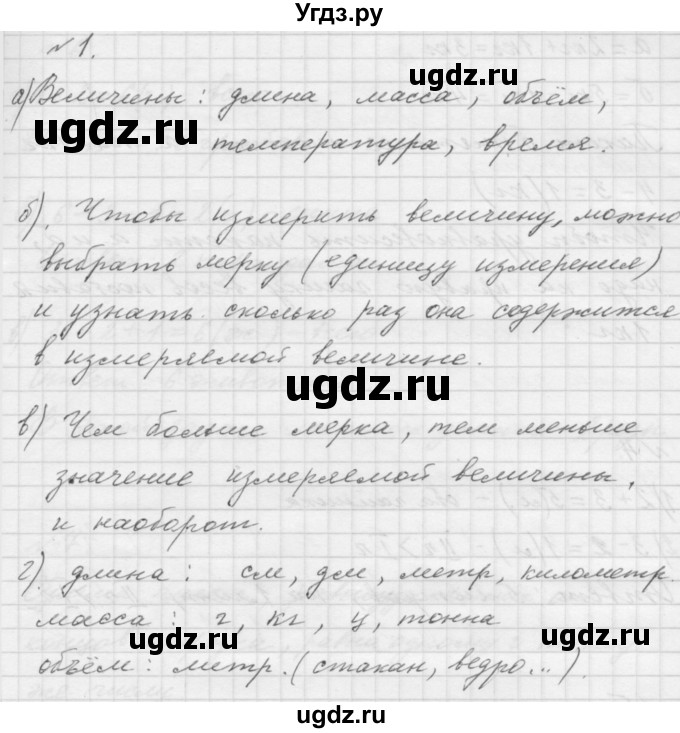 Угдз.ру
№1.
а) Величины: длина, масса, объём,
температура, время.
б). Чтобы измерить величину, можно
выбрать мерку (единицу измерения)
и узнать сколько раз она содержится
в измеряемой величине.
в) Чем больше мерка, тем меньше
значение измеряемой величины,
и наоборот.
г). длина: см, дм, метр, километр.
масса: г, кг, ц, тонна
объём: метр. (стакан, ведро...).
ugdz.ru
ugdz.ru
ugdz.ru
ugdz.ru
ugdz.ru
ugdz.ru
ugdz.ru
ugdz.ru